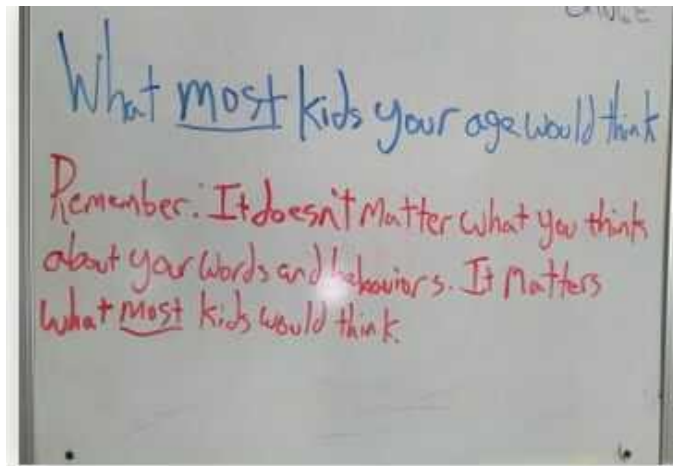 What most kids your age would think
Remember: It doesn't Matter what you think
about your words and behaviors. It Matters
what most kids would think.